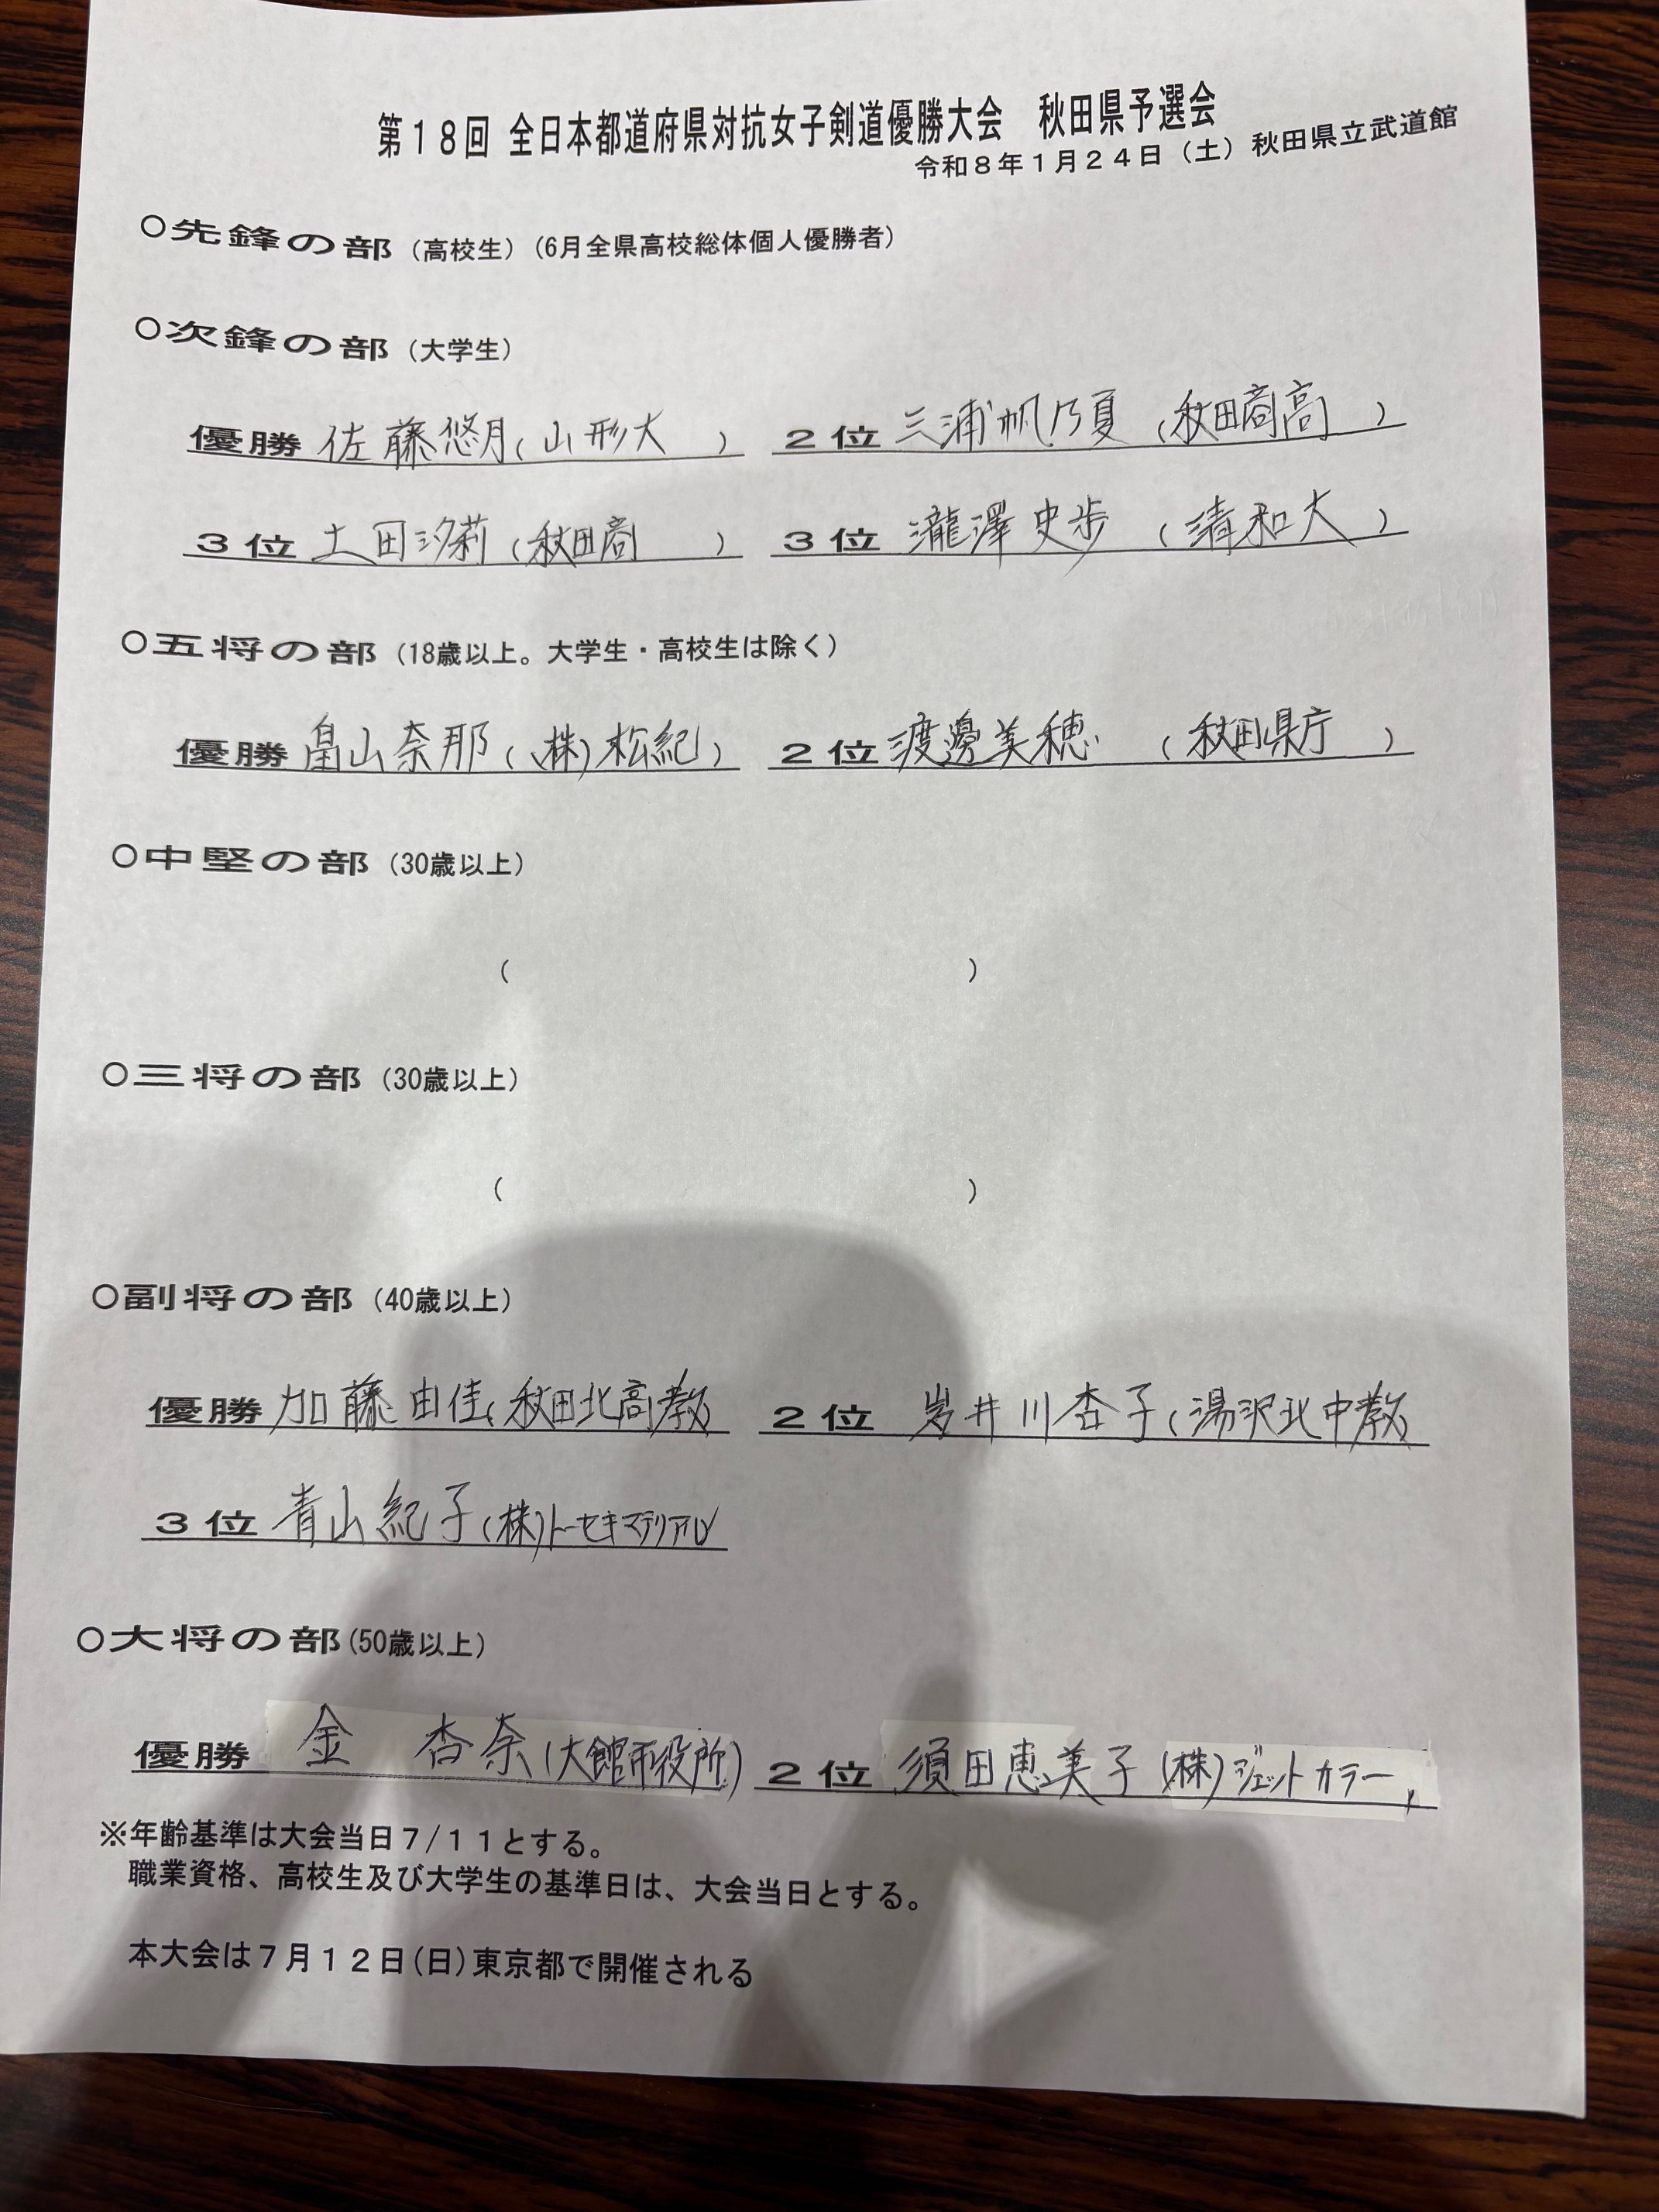 第１８回 全日本都道府県対抗女子剣道優勝大会　秋田県予選会
令和８年１月２４日（土）秋田県立武道館
○先鋒の部（高校生）（6月全県高校総体個人優勝者）
○次鋒の部（大学生）
優勝 佐藤悠月（山形大　） ２位 三浦帆乃夏（秋田商高　）
３位 土田汐莉（秋田商　） ３位 瀧澤史歩（清和大　）
○五将の部（18歳以上。大学生・高校生は除く）
優勝 畠山奈那（（株）松紀） ２位 渡邊美穂（秋田県庁　）
○中堅の部（30歳以上）
（　　）
○三将の部（30歳以上）
（　　）
○副将の部（40歳以上）
優勝 加藤由佳（秋田北高教） ２位 岩井川杏子（湯沢北中教）
３位 青山紀子（（株）トーセキマテリアル）
○大将の部（50歳以上）
優勝 金　杏奈（大館市役所） ２位 須田恵美子（（株）ジェットカラー）
※年齢基準は大会当日７/１１とする。
職業資格、高校生及び大学生の基準日は、大会当日とする。
本大会は７月１２日(日)東京都で開催される